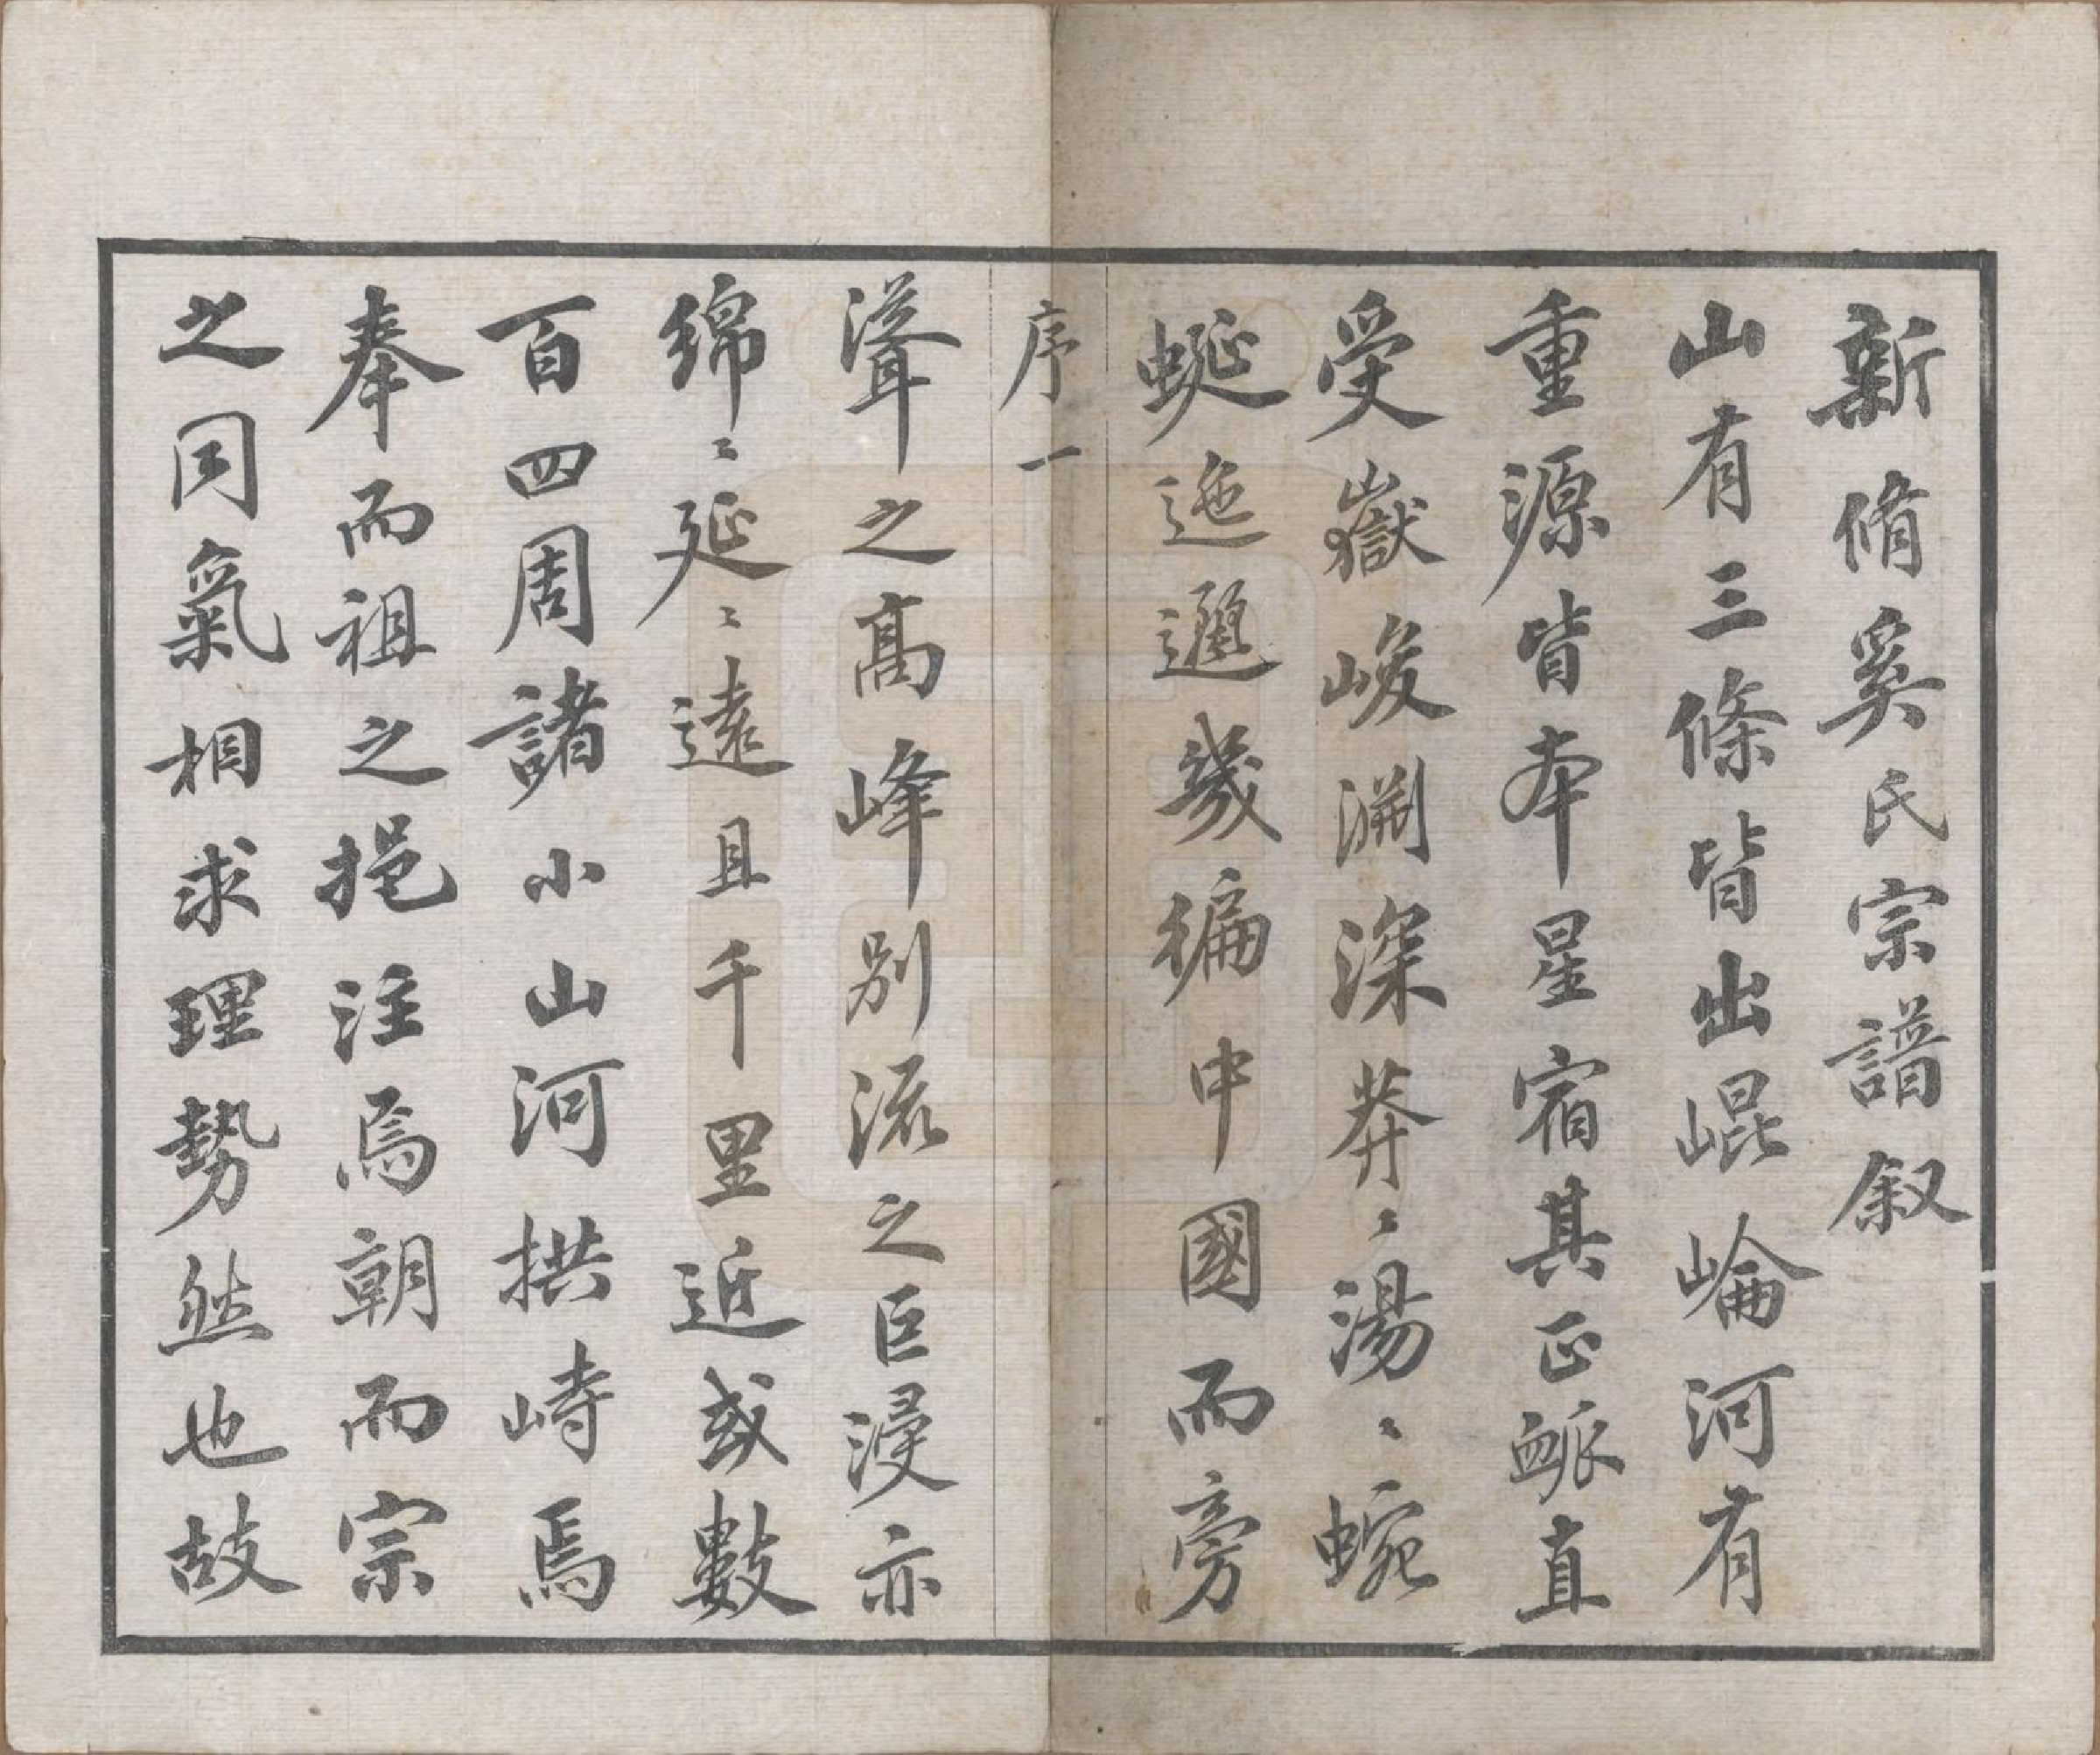 新脩奚氏宗譜叙
山有三條皆出崐崘河有
重源皆本星宿其正衇直
受嶽峻淵深莽〻湯〻蜿
蜒迤邐幾徧中國而旁
序一
聳之高峰别流之巨浸亦
綿〻延〻遠且千里近或數
百四周諸小山河拱峙焉
奉而祖之挹注焉朝而宗
之同氣相求理勢然也故